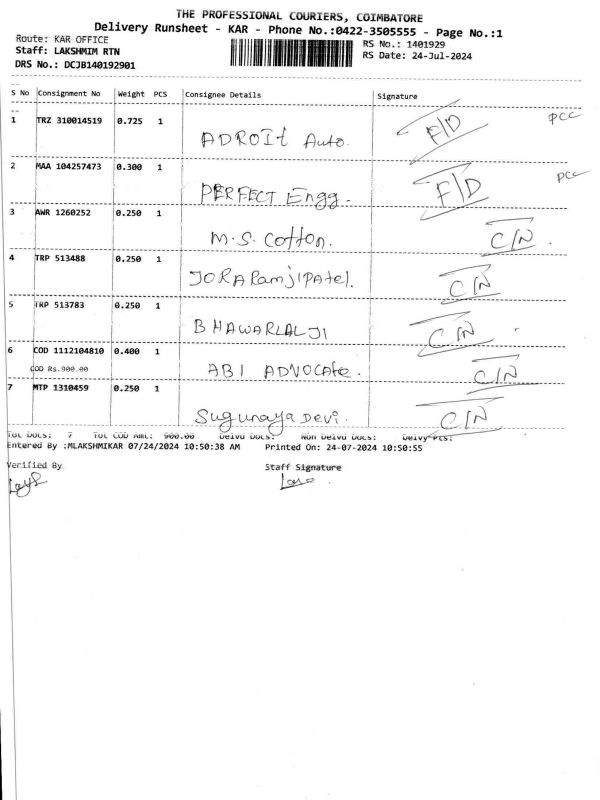 THE PROFESSIONAL COURIERS, COIMBATORE
Delivery Runsheet - KAR - Phone No.:0422-3505555 - Page No.:1
Route: KAR OFFICE
RS No.: 1401929
Staff: LAKSHMIM RTN
RS Date: 24-Jul-2024
DRS No.: DCJB140192901
S No Consignment No Weight PCS Consignee Details Signature
1 TRZ 310014519 0.725 1 ADROIt Auto. F/D PCC
2 MAA 104257473 0.300 1 PERFECT Engg. F/D PCC
3 AWR 1260252 0.250 1 M.S. Cotton. C/N.
4 TRP 513488 0.250 1 JORARamjiPAtel. C/N
5 TRP 513783 0.250 1 BHAWARLALJI C/N
6 COD 1112104810 0.400 1 ABI ADVOCAte. C/N
COD Rs.900.00
7 MTP 1310459 0.250 1 Sugunaya Devi. C/N
Tot Docs: 7 Tot COD Amt: 900.00 Delvd Docs: Non Delvd Docs: Delvy Pts:
Entered By :MLAKSHMIKAR 07/24/2024 10:50:38 AM Printed On: 24-07-2024 10:50:55
Verified By Staff Signature